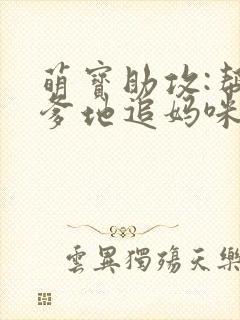 萌寶助攻:幫
爹地追媽咪
雲異獨殤天樂